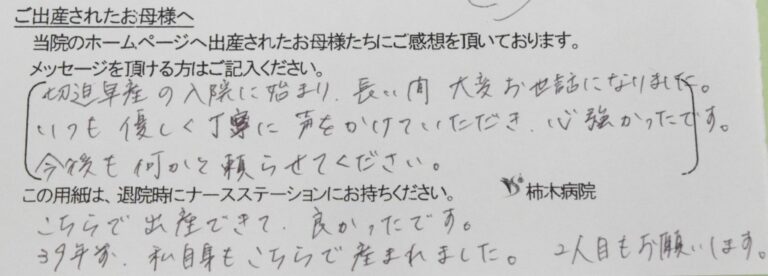 ご出産されたお母様へ
当院のホームページへ出産されたお母様たちにご感想を頂いております。
メッセージを頂ける方はご記入ください。
切迫早産の入院に始まり、長い間 大変お世話になりました。
いつも優しく丁寧に声をかけていただき、心強かったです。
今後も何かと頼らせてください。
この用紙は、退院時にナースステーションにお持ちください。 柿木病院
こちらで出産できて、良かったです。
39年前、私自身もこちらで産まれました。 2人目もお願いします。